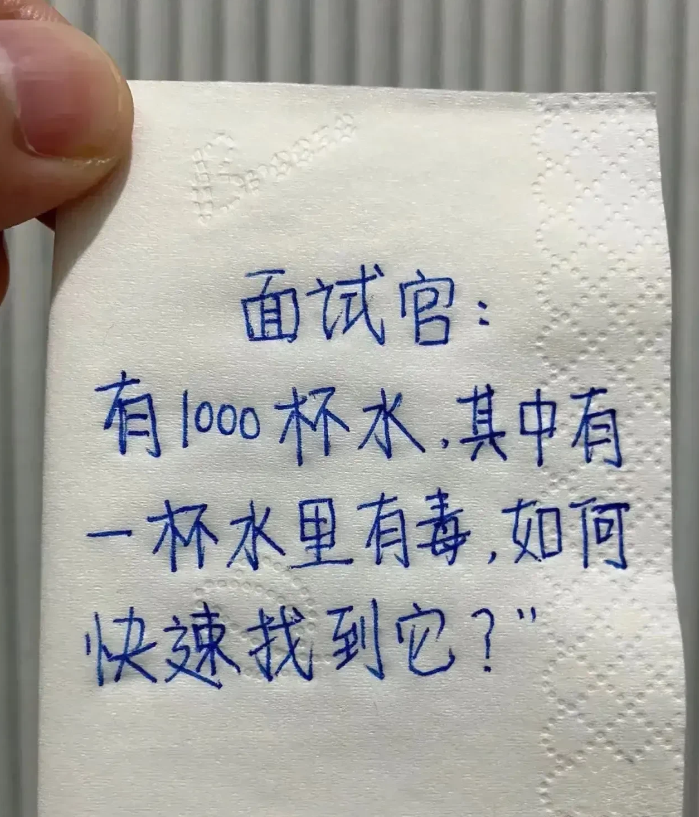 面试官：
有1000杯水，其中有
一杯水里有毒，如何
快速找到它？”